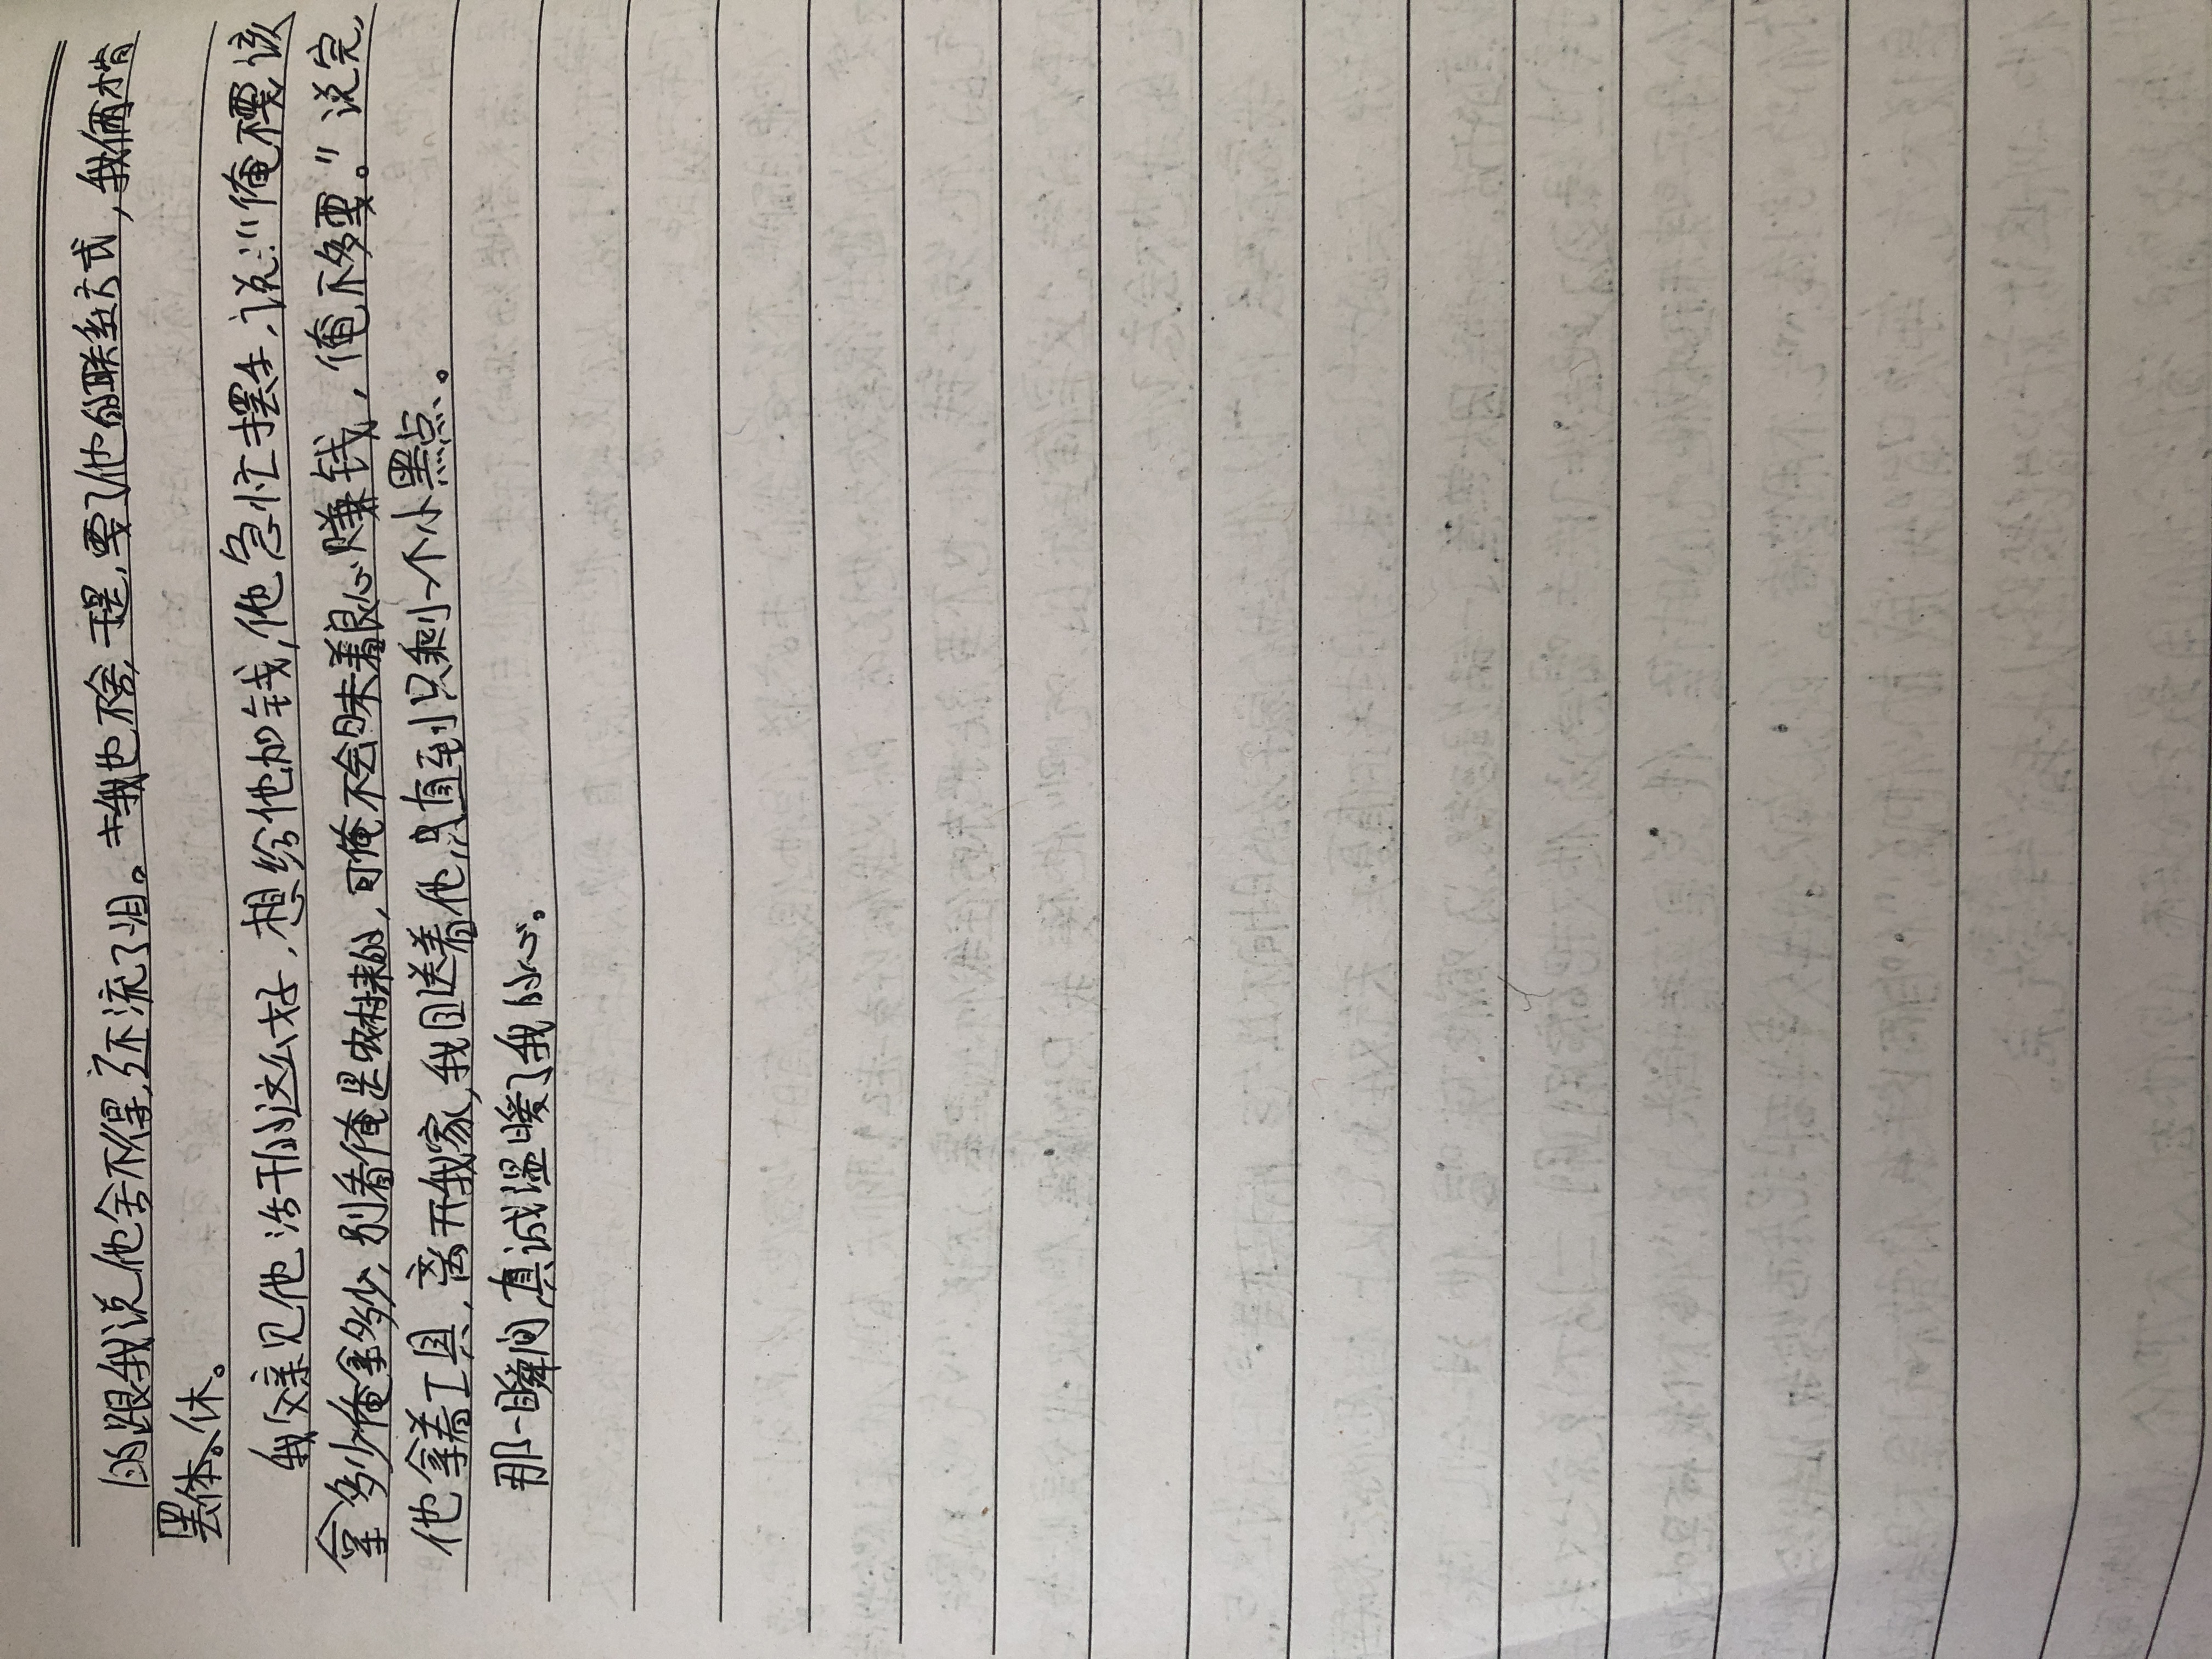 的跟我说他舍不得,还流了泪。我也不舍,于是,要了他的联系方式,我俩惜
黑体。休。
我父亲见他活干的这么好,想给他加钱,他急忙摆手,说:“俺不要,该
拿多少俺拿多少,别看俺是农村来的,可俺不会昧着良心赚钱,俺不多要。”说完,
他拿着工具,离开我家,我目送着他,直到只剩一个小黑点。
那一瞬间,真诚温暖了我的心。